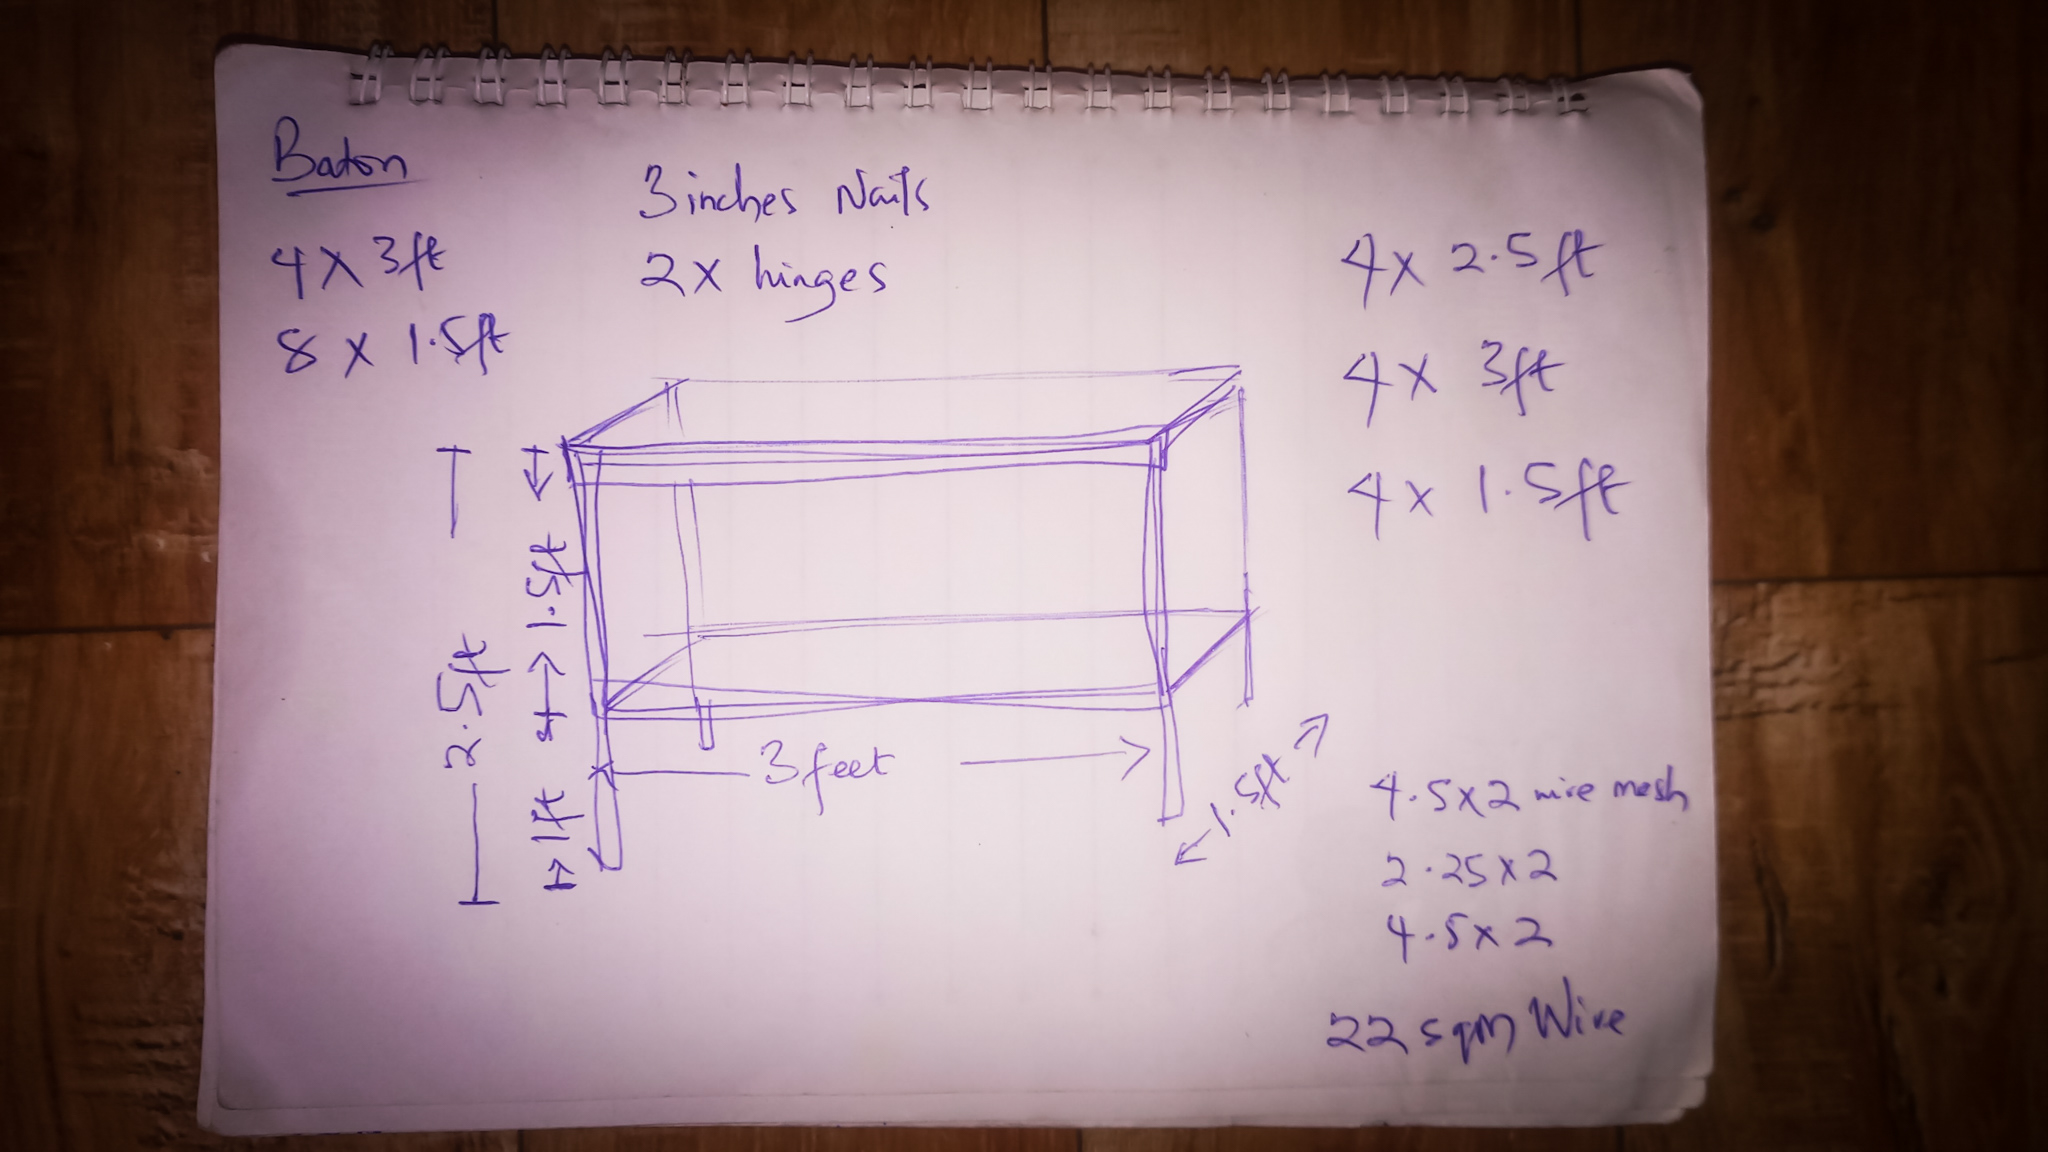 Baton
4 x 3ft
8 x 1.5ft
3 inches Nails
2 x hinges
4 x 2.5ft
4 x 3ft
4 x 1.5ft
2.5ft
1.5ft
1ft
3 feet
1.5ft
4.5 x 2 wire mesh
2.25 x 2
4.5 x 2
22 sqm Wire